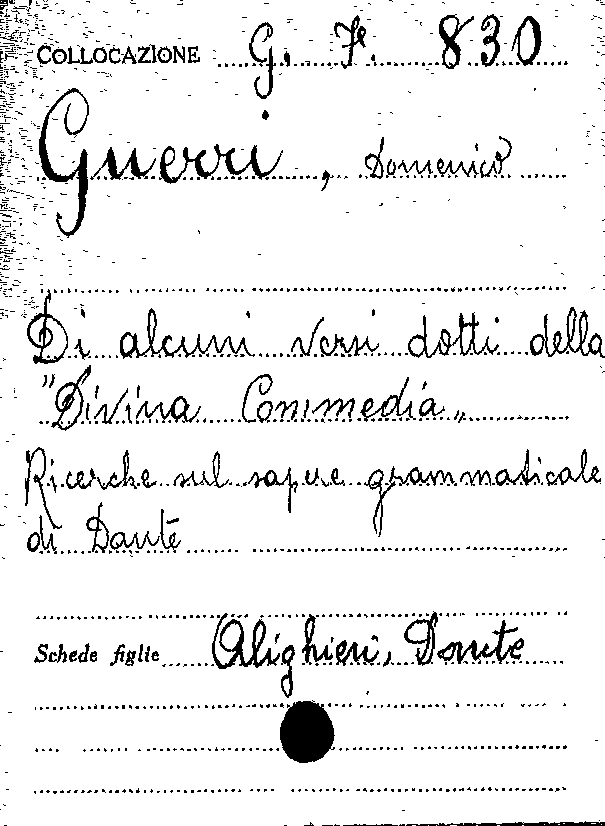 COLLOCAZIONE G. F. 830
Guerri, Domenico
Di alcuni versi dotti della
"Divina Commedia„
Ricerche sul sapere grammaticale
di Dante
Schede figlie Alighieri, Dante